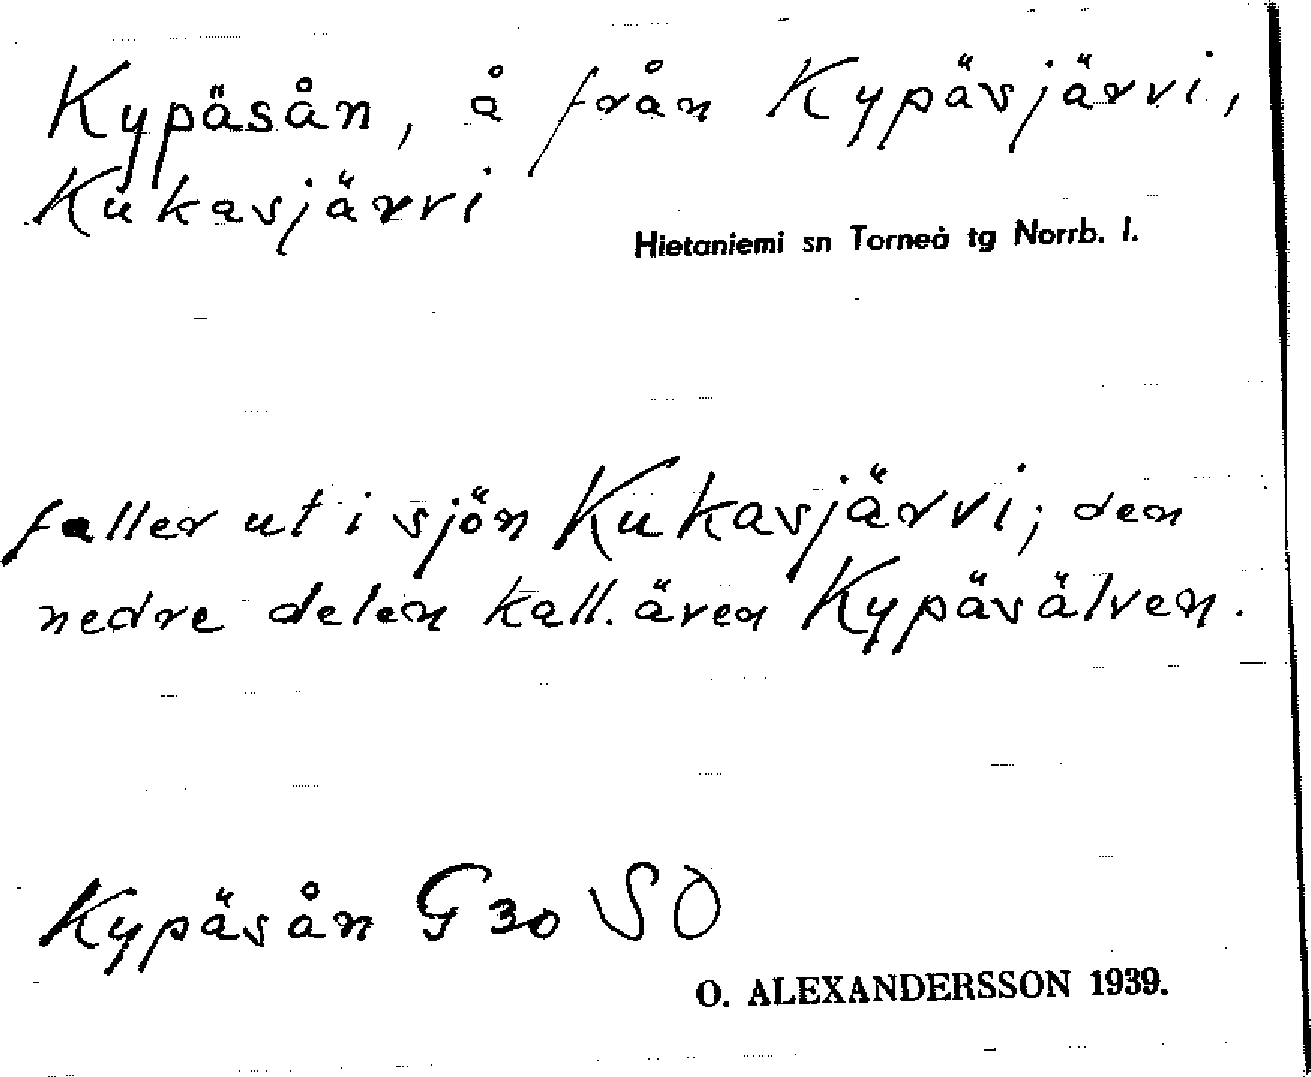 Kypäsån, å från Kypäsjärvi,
Kukasjärvi
Hietaniemi sn Torneå tg Norrb. l.
faller ut i sjön Kukasjärvi; den
nedre delen kall. även Kypäsälven.
Kypäsån G 30 SO
O. ALEXANDERSSON 1939.